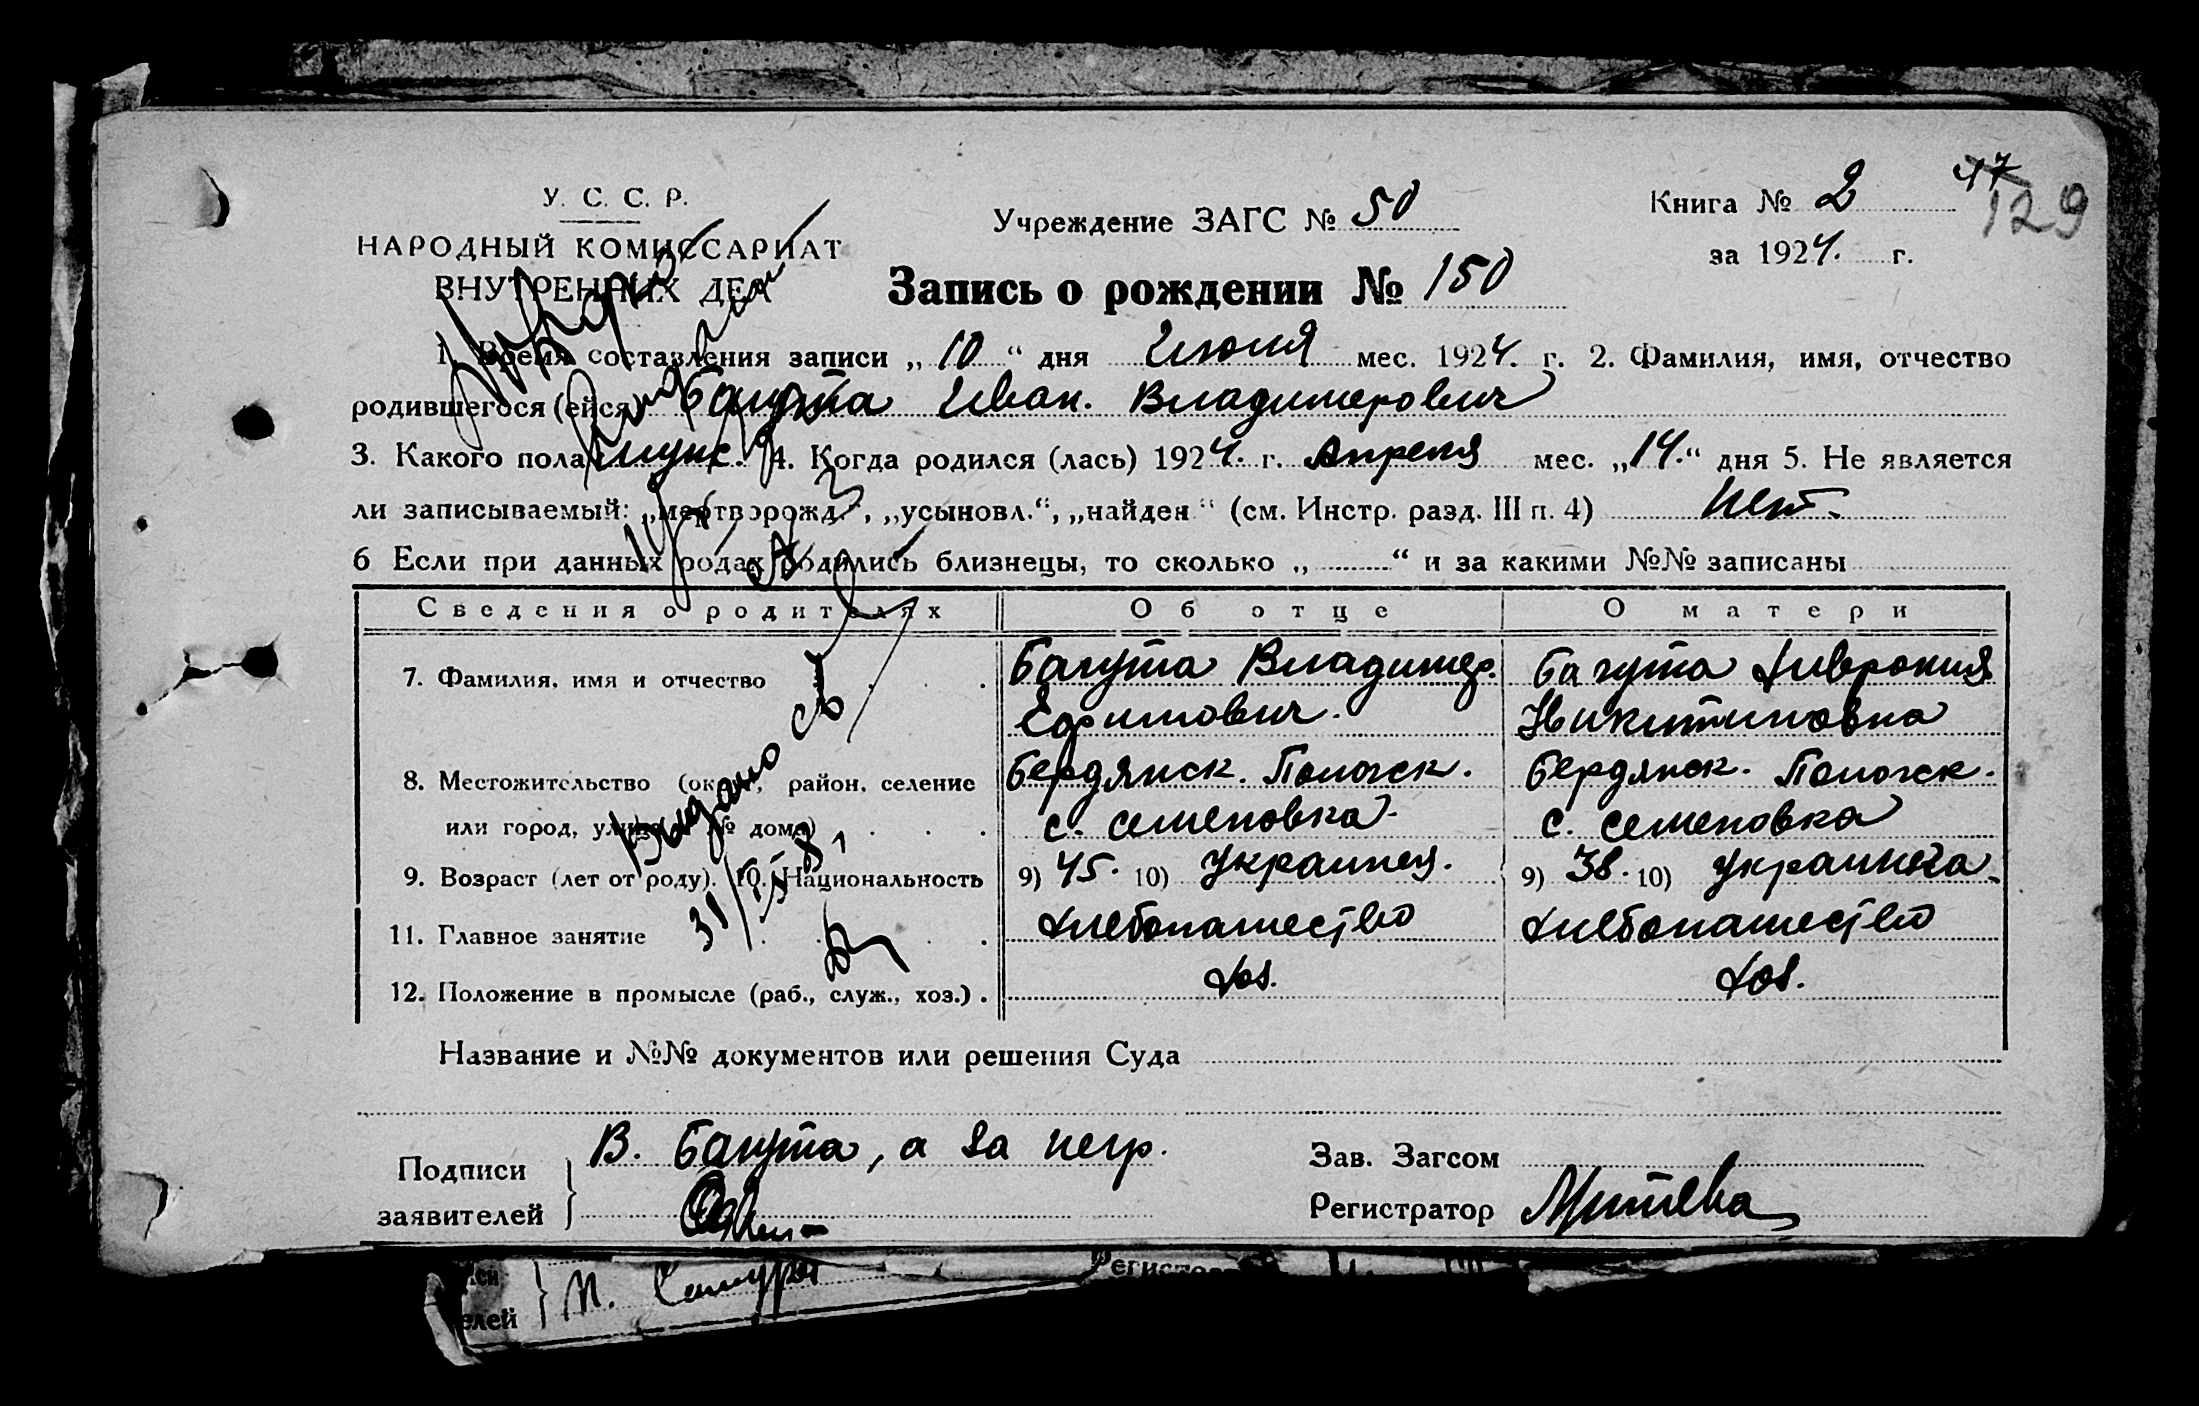 У. С. С. Р.
НАРОДНЫЙ КОМИССАРИАТ
ВНУТРЕННИХ ДЕЛ
Учреждение ЗАГС № 50
Книга № 2
за 1924. г.
47
129
Запись о рождении № 150
1. Время составления записи „ 10 “ дня Июня мес. 1924. г. 2. Фамилия, имя, отчество
родившегося (ейся) Багута Иван. Владимерович
3. Какого пола муж. 4. Когда родился (лась) 1924. г. Апреля мес. „14.“ дня 5. Не является
ли записываемый: „мертворожд.“, „усыновл.“, „найден“ (см. Инстр. разд. III п. 4) Нет.
6 Если при данных родах родились близнецы, то сколько „ “ и за какими №№ записаны
Сведения о родителях Об отце О матери
7. Фамилия, имя и отчество Багута Владимер. Багута Хиврония
Ефимович. Никитиновна
8. Местожительство (округ, район, селение Бердянск. Пологск. Бердянск. Пологск.
или город, улица и № дома) с. Семеновка. с. Семеновка
9. Возраст (лет от роду). 10. Национальность 9) 45. 10) Украинец. 9) 38. 10) Украинка.
11. Главное занятие Хлебопашество Хлебопашество
12. Положение в промысле (раб., служ., хоз.). Хоз. Хоз.
Выдано св
31/
Название и №№ документов или решения Суда
Подписи
заявителей
В. Багута, а за негр.
Зав. Загсом
Регистратор
елей